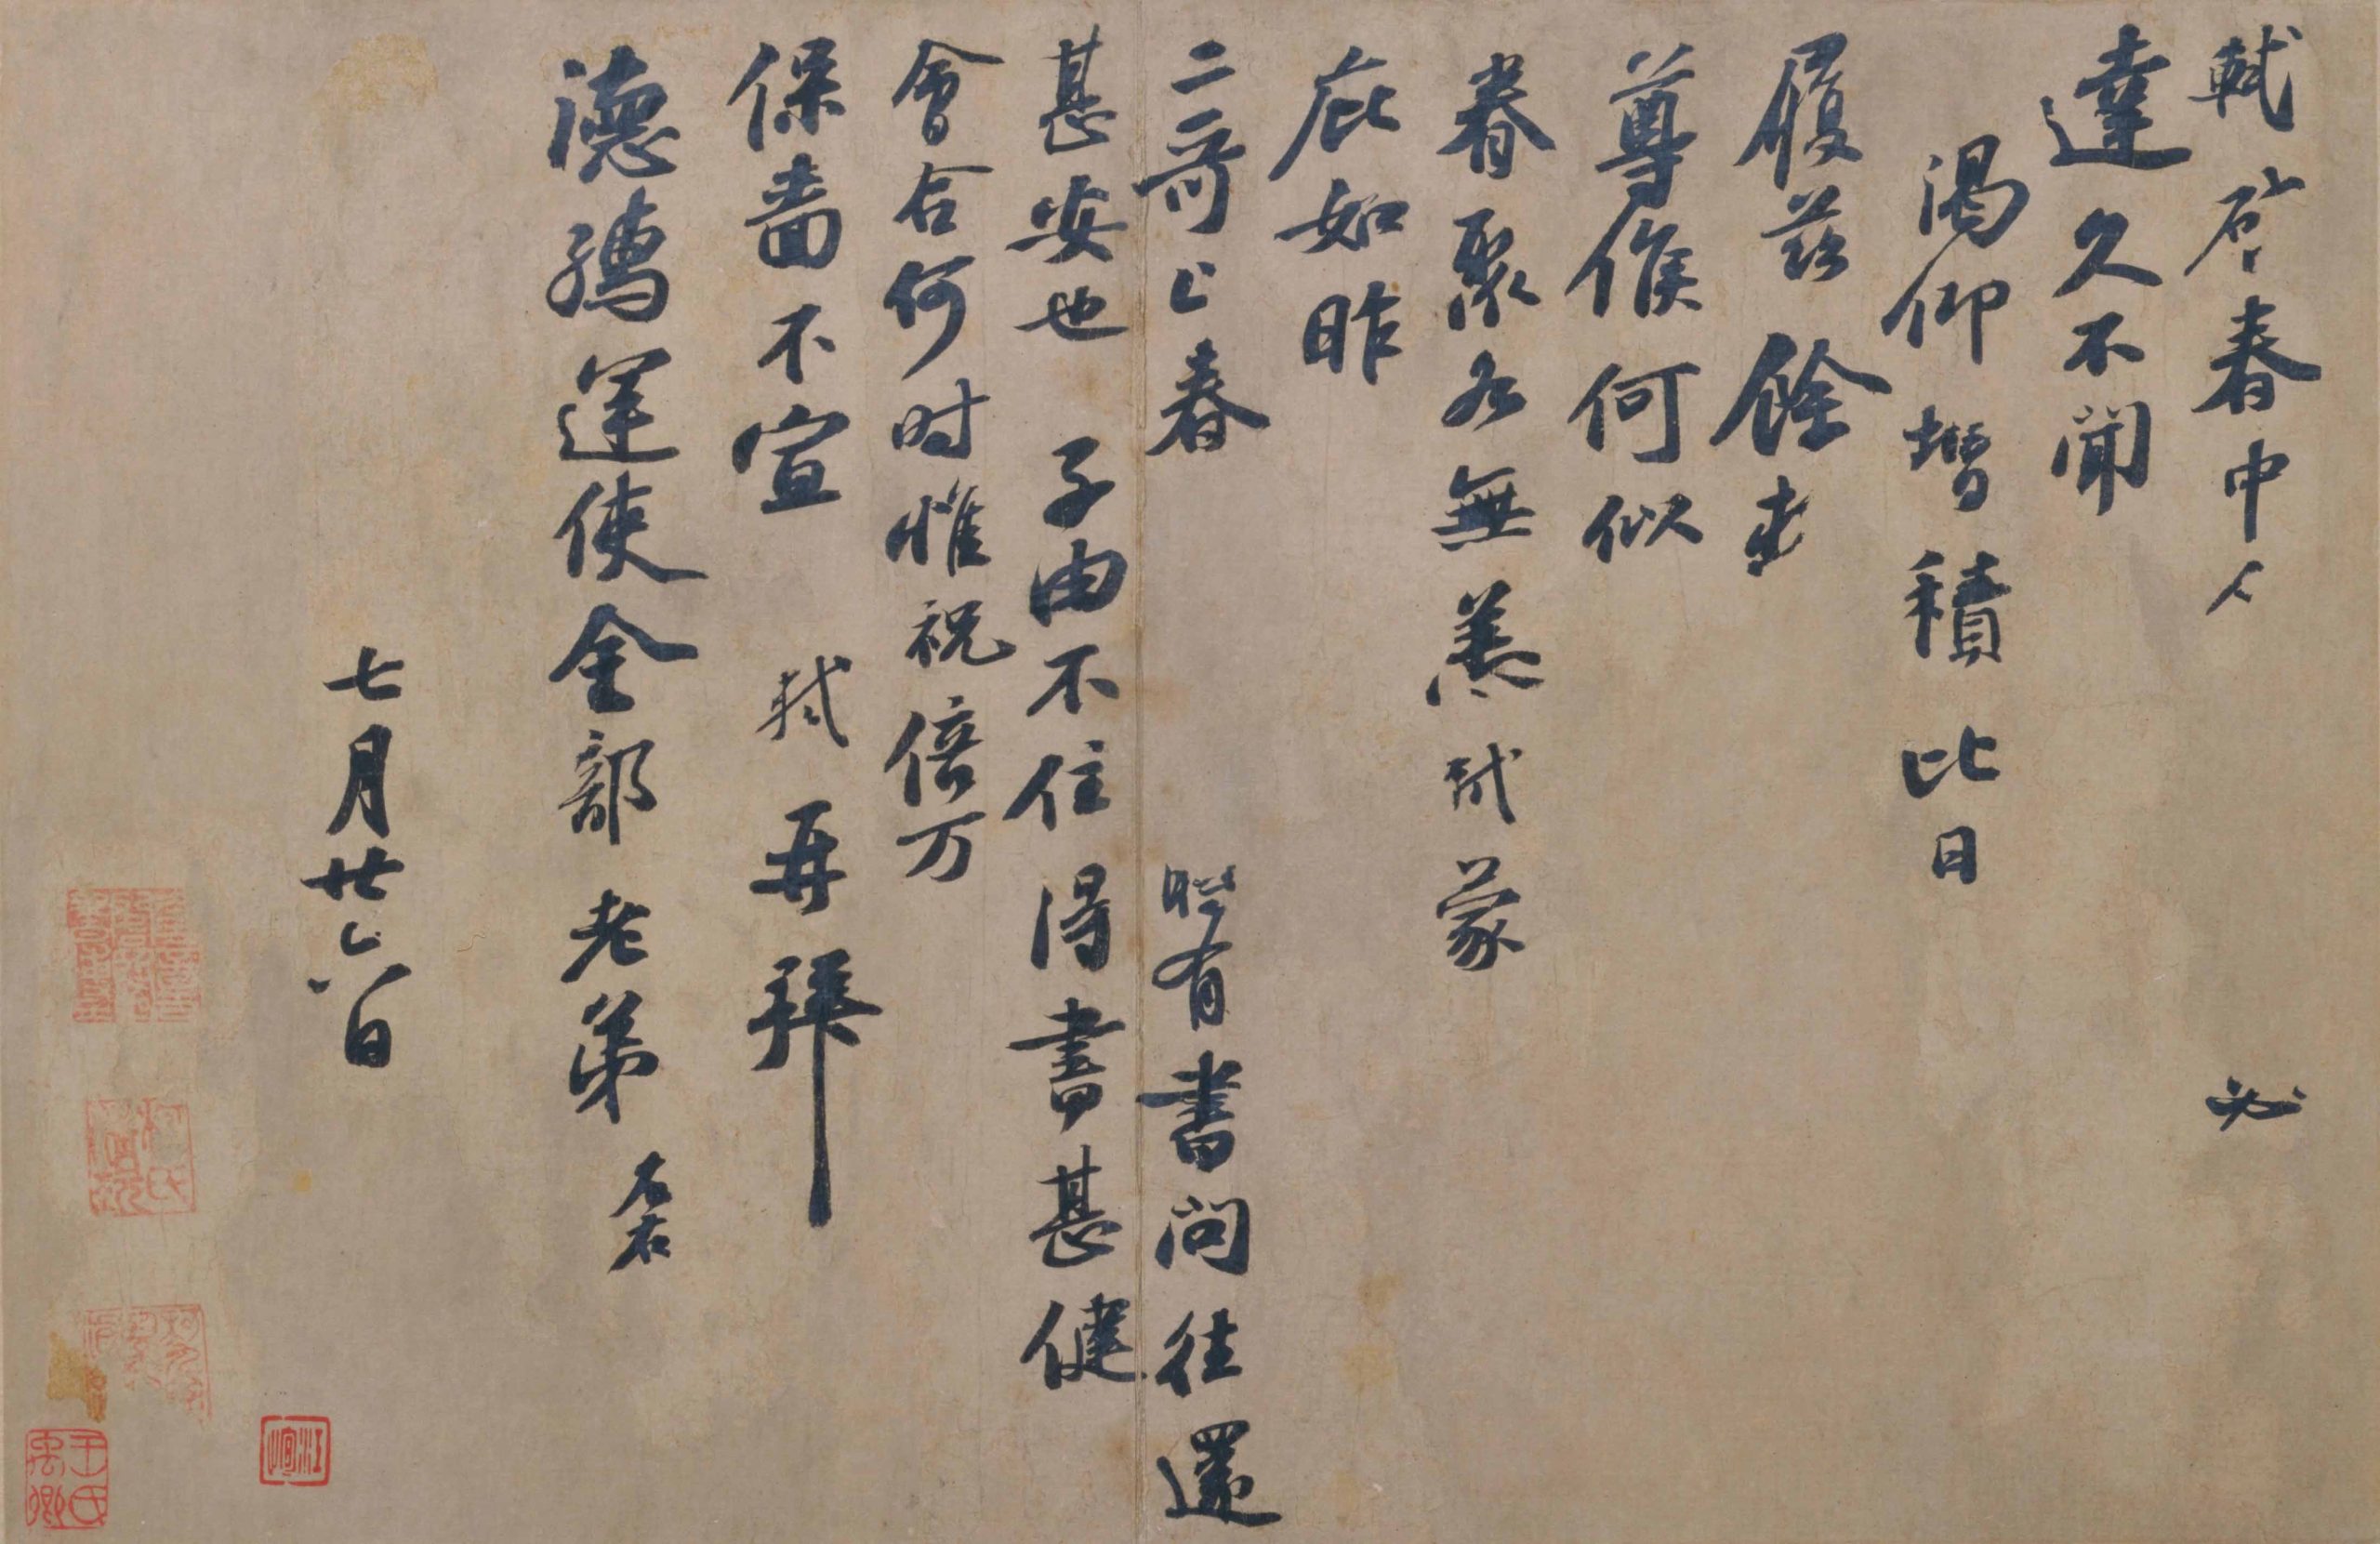 軾啓春中人 必
達久不聞
渴仰增積比日
履茲餘熱
尊候何似
眷聚各無恙軾蒙
庇如昨
二哥上春 時有書問往還
甚安也 子由不住得書甚健
會合何時惟祝倍万
保嗇不宣 軾再拜
德孺運使金部老弟
七月廿六日